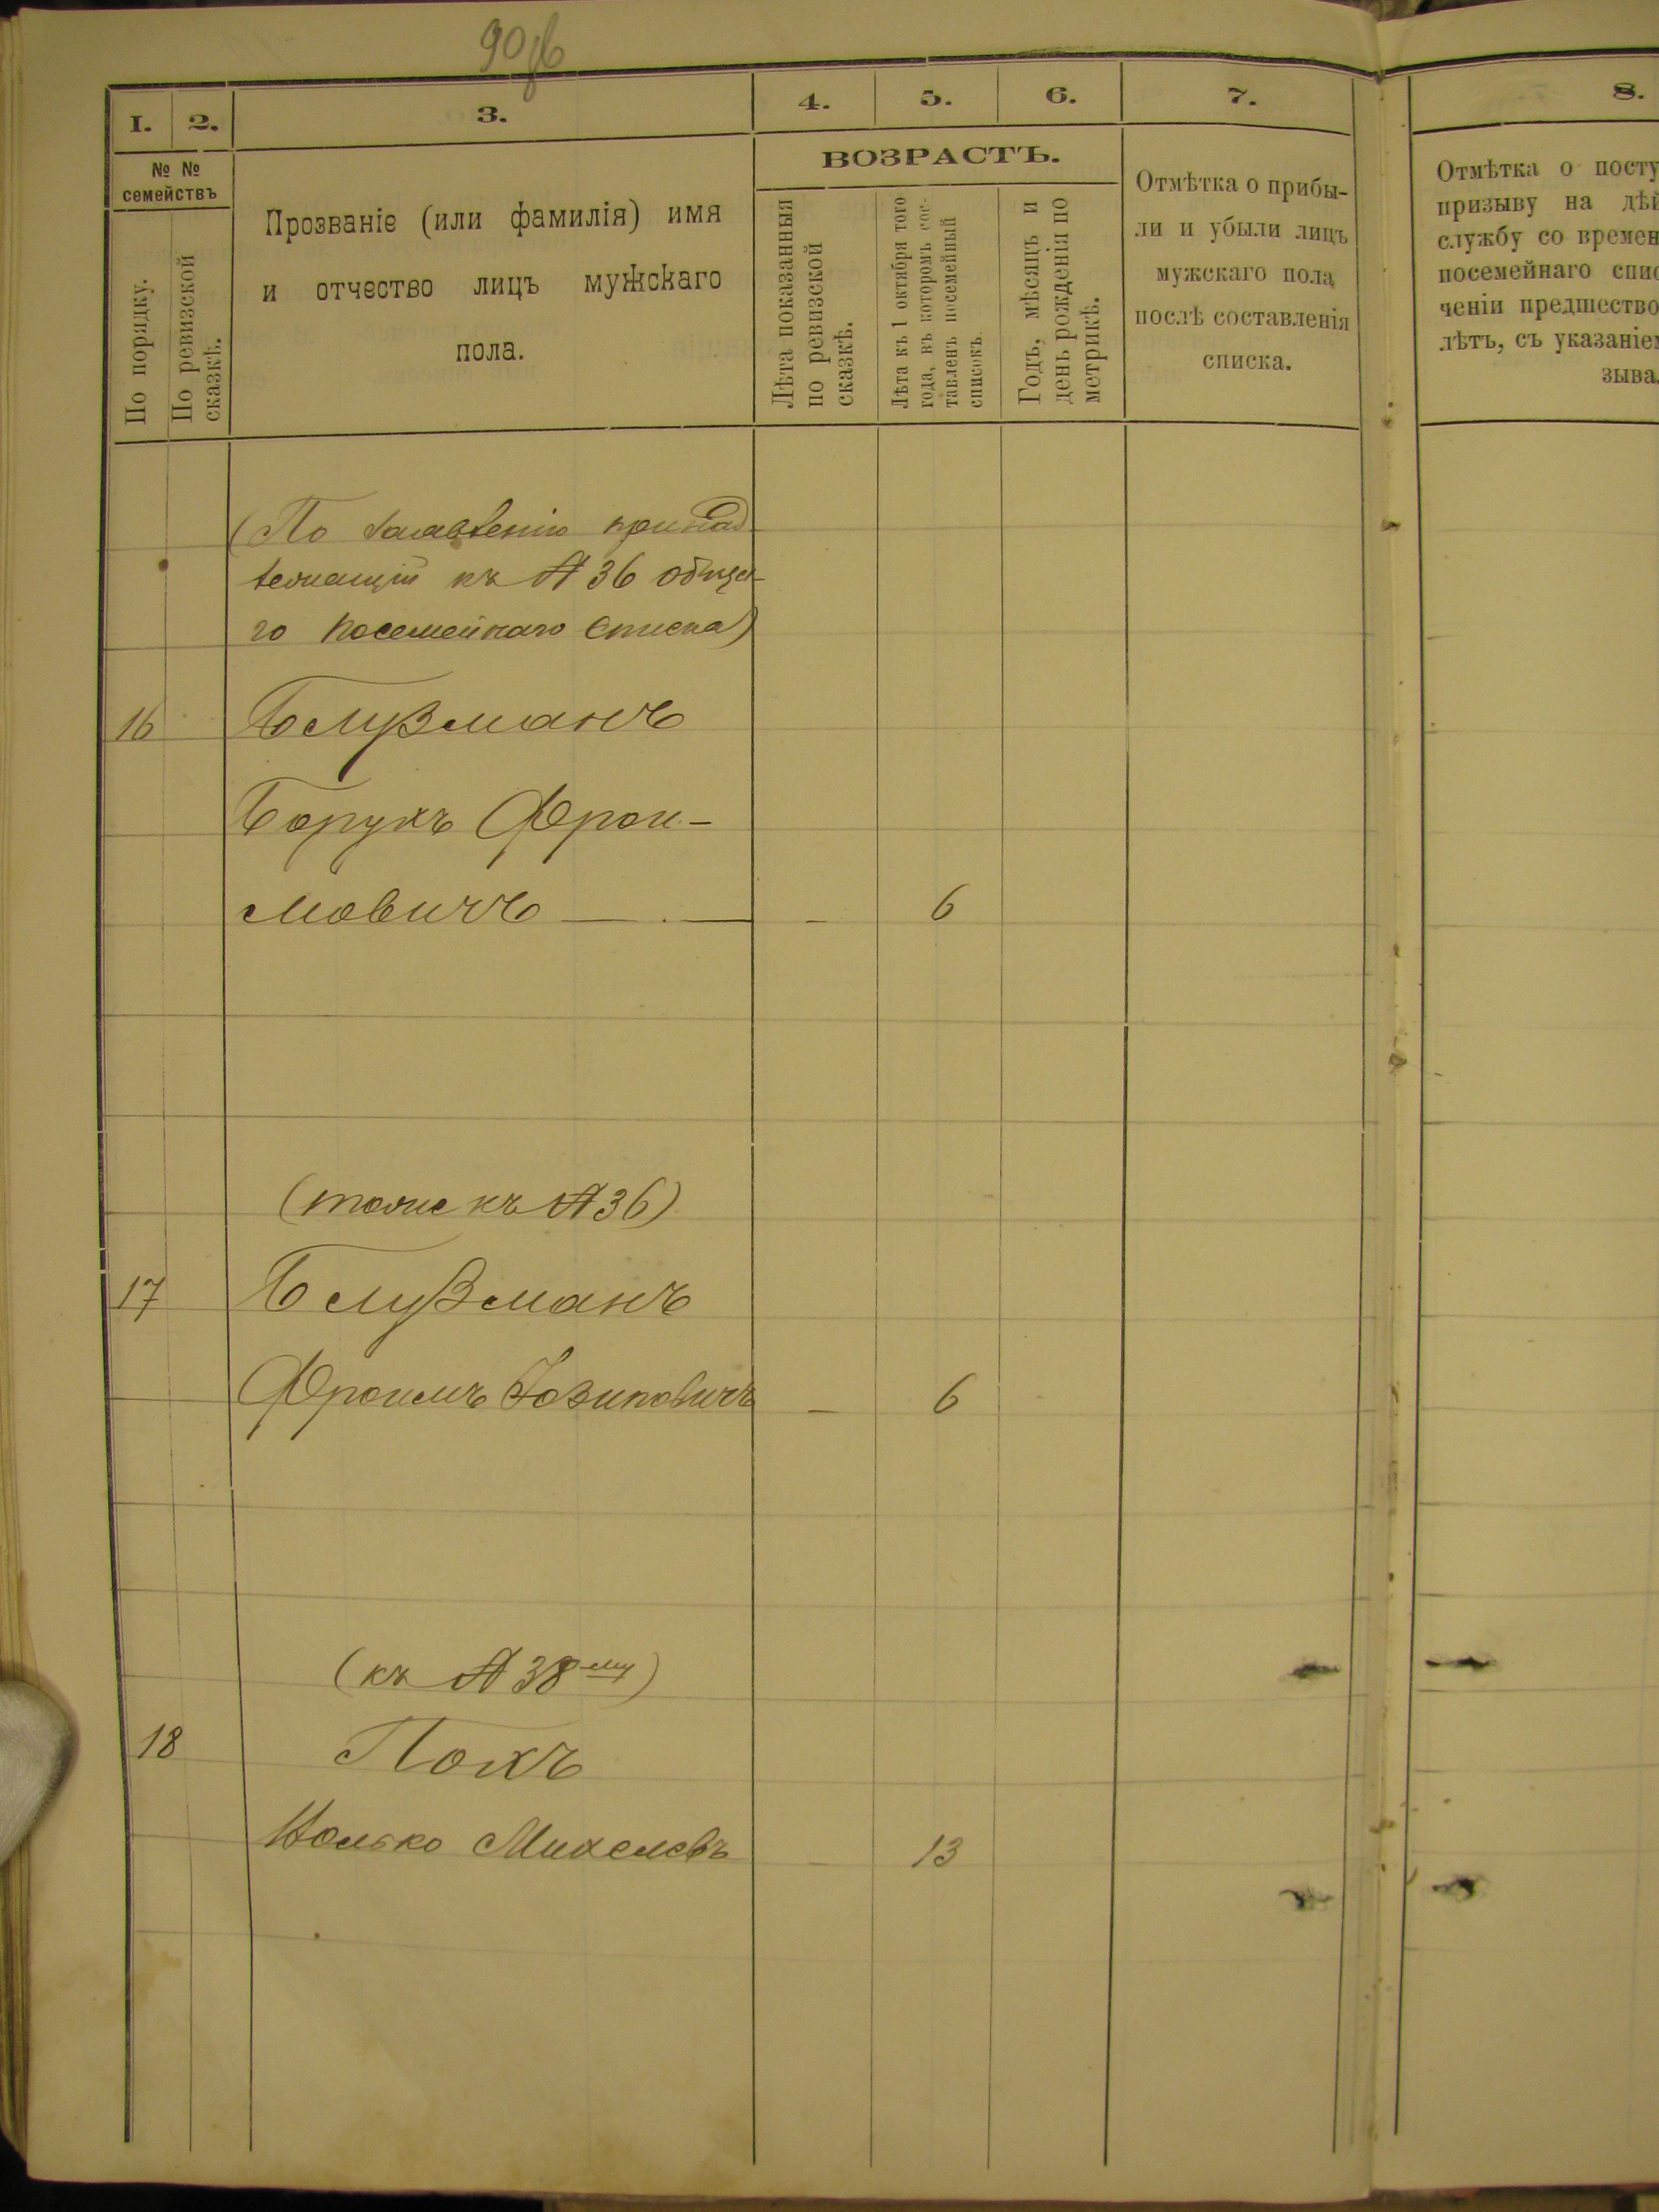 90об
I. 2. 3. 4. 5. 6. 7. 8.
№ №
семействъ
По порядку.
По ревизской
сказкѣ.
Прозваніе (или фамилія) имя
и отчество лицъ мужскаго
пола.
ВОЗРАСТЪ.
Лѣта показанныя
по ревизской
сказкѣ.
Лѣта къ 1 октября того
года, въ которомъ сос-
тавленъ посемейный
списокъ.
Годъ, мѣсяцъ и
день рожденія по
метрикѣ.
Отмѣтка о прибы-
ли и убыли лицъ
мужскаго пола
послѣ составленія
списка.
Отмѣтка о посту
призыву на дѣй
службу со времен
посемейнаго спис
ченіи предшество
лѣтъ, съ указаніем
зыва.
(По заявленію принад-
лежащій къ № 36 обща-
го посемейнаго списка)
16 Блузманъ
Борухъ Фрои-
мовичъ — . — – 6
(тоже къ № 36)
17 Блузманъ
Фроимъ Іозиповичъ – 6
(къ № 38му)
18 Покъ
Ицько Михелевъ – 13